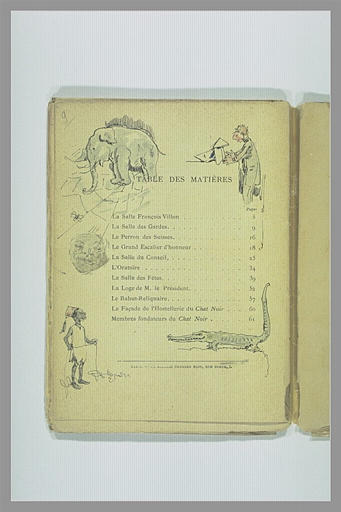 TABLE DES MATIÈRES
Pages
La Salle François Villon
La Salle des Gardes. 9
Le Perron des Suisses. 16
Le Grand Escalier d'honneur 18
La Salle du Conseil, 25
L'Oratoire 34
La Salle des Fêtes. 39
La Loge de M. le Président. 52
Le Bahut-Reliquaire. 57
La Façade de l'Hostellerie du Chat Noir 60
Membres fondateurs du Chat Noir 61